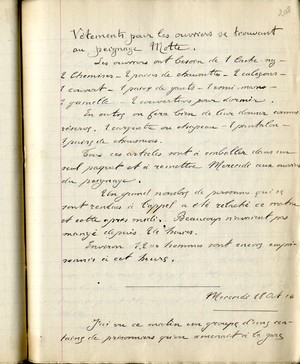 Vêtements pour les ouvriers se trouvant
au peignage Motte.
Les ouvriers ont besoin de 1 cache-nez
2 Chemises - 2 paires de chaussettes - 2 caleçons -
1 couvert - 1 paire de gants - 1
1 gamelle - 2 couvertures pour dormir.
En outre on fera bien de leur donner comme
réserve. 1 casquette ou chapeau - 1 pantalon -
1 paire de chaussons.
Tous ces articles sont à emballer dans un
seul paquet et à remettre Mercredi aux ouvriers
du peignage.
Un grand nombre de personnes qui se
sont rendues à l'appel a été relâché ce matin
et cette après midi. Beaucoup n'avaient pas
mangé depuis 24 heures.
Environ hommes sont encore
à cet heure.
Mercredi 18 Oct 16
J'ai vu ce matin un groupe d'une cen-
taine de prisonniers qu'on amenait à la gare